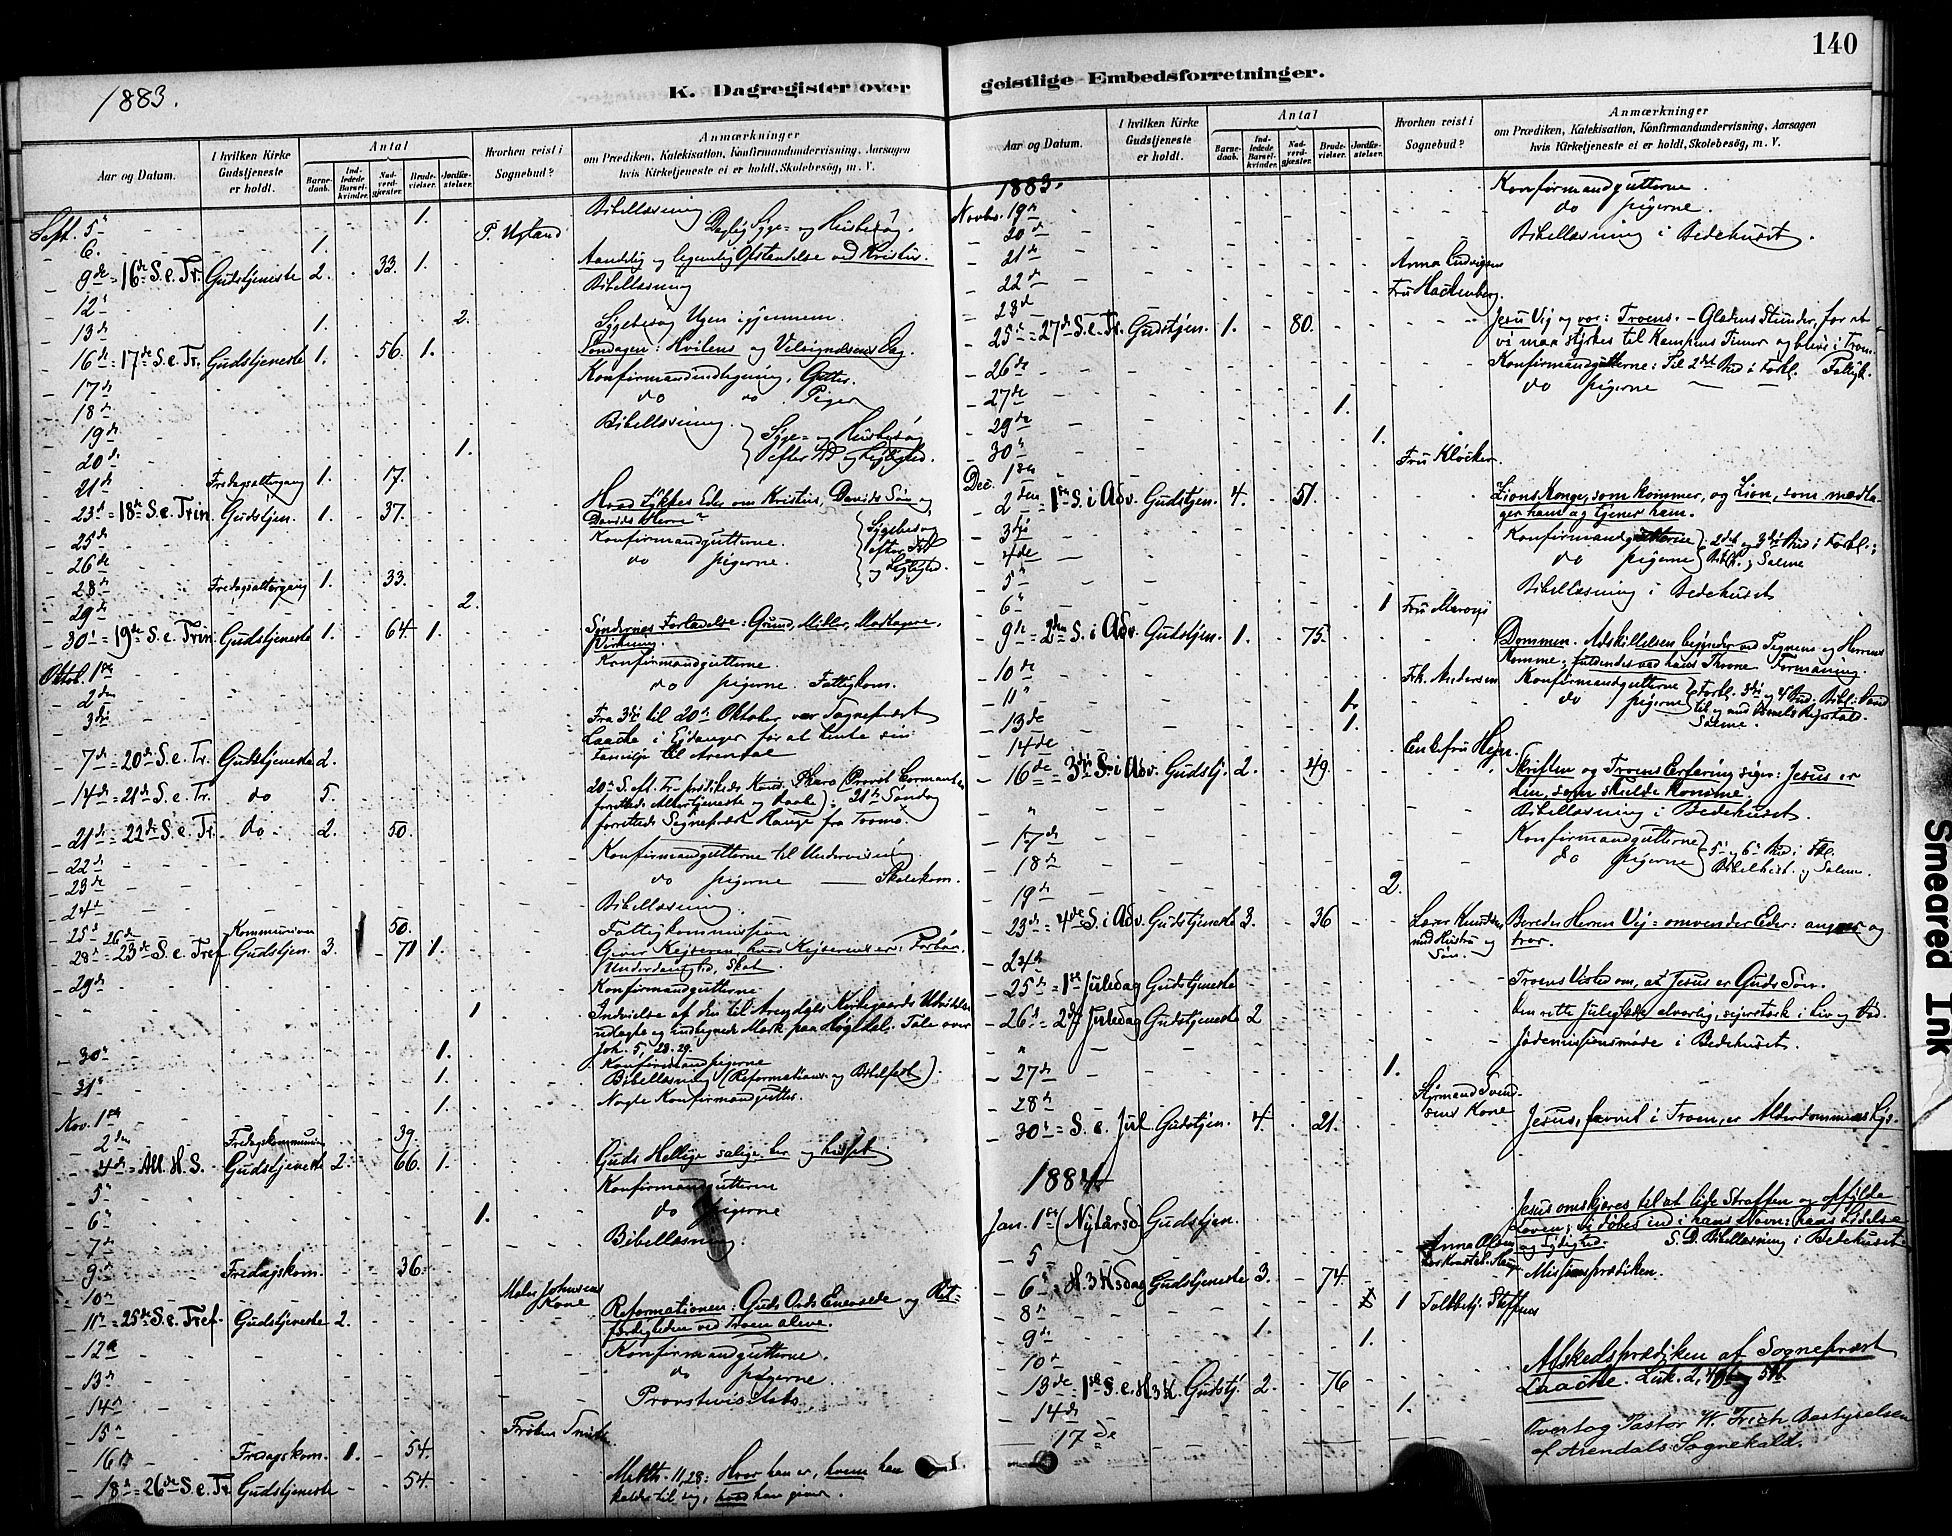 140
1883.
K. Dagregister over
geistlige Embedsforretninger.
Aar og Datum.
I hvilken Kirke Gudstjeneste er holdt.
Antal
Barne-daab.
Ind-ledede Barsel-kvinder.
Nad-verds-gjæster.
Brude-vielser.
Jordfæ-stelser.
Hvorhen reist i Sognebud?
Anmærkninger
om Prædiken, Katekisation, Konfirmandundervisning, Aarsagen
hvis Kirketjeneste ei er holdt, Skolebesög, m. V.
Sept. 5 1. Bibellæsning
6. 1. P. Ugland Daglig Syge- og Husbesøg.
9de = 16de S. e. Tr. Gudstjeneste 2. 33. 1. Aandelig og legemlig Opstandelse ved Kristus.
12 Bibellæsning
13de 1. 2. Sygebesøg Ugen igjennem.
16de = 17de S. e. Tr. Gudstjeneste 1. 56. 1. Søndagen: Hvilens og Velsignelsens Dag.
17de Konfirmand Gutter.
18 do do Piger
19de Bibellæsning.
20de 1. Syge- og Husbesøg
21de Fredagsaltergang 1. 17. efter Tid og Leilighed.
23d = 18de S. e. Trin Gudstjen. 1. 37. Hvad tykkes Eder om Kristus, Davids Søn og
Davids Herre?
25de Konfirmandgutterne Sygebesøg
26de do pigerne. efter Tid
28de Fredagsaltergang 1. 33. og Leilighed.
29de 2.
30 = 19de S. e. Trin Gudstjeneste 1. 64. 1. Syndernes Forladelse: Grund, Midler, Modtagere,
Virkning.
Oktbr. 1ste Konfirmandgutterne.
2den do pigerne. Fattigkom.
3die Fra 3die til 20de Oktober var Sognepræst
Laache i Eidanger for at hente sin
Familje til Arendal
7de = 20de S. e. Tr. Gudstjeneste 2.
14de = 21de S. e. Tr. do 5. 20de S. eft. Tr. prædikede Kand. Pharo (Provst
forrettede Altertjeneste og Daab); 21de Søndag
21de = 22de S. e. Tr. do 2. 50. forrettede Sognepræst Hauge fra Tromø.
22de Konfirmandgutterne til Undervisning.
23de do pigerne Skolekom.
24de Bibellæsning.
25de 26de Kommunion 50. Fattigkommission
28de = 23de S. e. Tref Gudstjen. 3. 71 1. Giver Keiseren, hvad Keiserens er: Forbøn,
Underdanighed, Skat.
29de Konfirmandgutterne
" 1 Indvielse af den til Arendals Kirkegaards Udvidelse
udlagte og indhegnede Mark paa Høgedal. Tale over
Joh. 5, 28. 29.
30 1. Konfirmandpigerne
31 1. Bibellæsning (Reformations og Bibelfest).
Nov. 1ste 1. Nogle Konfirmandgutter.
2den Fredagskommunion 39
4de = All. H. S. Gudstjeneste 2. 66. 1. Guds Hellige salige her og hisset
5 Konfirmandgutterne
6 1. do pigerne
7de Bibellæsning.
9 Fredagskom. 36.
10 Johnsens Kone
11te = 25de S. e. Tref. Gudstjeneste 2. Reformationen: Guds Ords Enevælde og Ret-
færdigheden ved Troen alene.
12te Konfirmandgutterne.
13de do pigerne.
14de Provstevisitats
15 Frøken Smith.
16de Fredagskom. 1. 54.
18de = 26de S. e. Tr. Gudstjeneste 54. Matth. 11,28: Hvor han er, hvem han
kalder til sig, hvad han giver. 1.
Aar og Datum.
I hvilken Kirke Gudstjeneste er holdt.
Antal
Barne-daab.
Ind-ledede Barsel-kvinder.
Nad-verd-gjæster.
Brude-vielser.
Jordfæ-stelser.
Hvorhen reist i Sognebud?
Anmærkninger
om Prædiken, Katekisation, Konfirmandundervisning, Aarsagen
hvis Kirketjeneste ei er holdt, Skolebesög, m. V.
1883.
Novbr. 19de Konfirmandgutterne.
20de do pigerne.
21de Bibellæsning i Bedehuset.
22de Anna Ludvigsen
23de Fru Hackenberg.
25de = 27de S. e. Tr. Gudstjen. 1. 80. Jesu Vej og vor: Troens. - Glædens Stunder, for at
vi maa styrkes til Kampens Timer og blive i Troen.
26de Konfirmandgutterne: Til 2det Bud i Forkl. Fattigk.
27de 1. do pigerne
29de 1.
30 Fru Kløcker.
Dec. 1ste
2den = 1ste S. i Adv. Gudstjen. 4. 51. Zions Konge, som kommer, og Zion, som modta-
ger ham og tjener ham.
3die Konfirmandgutterne 2det og 3die Bud i Forkl.;
4de do pigerne Salme
5 Bibellæsning i Bedehuset
6 1
9de = 2den S. i Adv. Gudstjen. 1. 75. Dommen. Adskillelsen begynder ved Tegnens og Herrens
Komme; fuldendes ved hans Throne. Formaning.
10de Frk. Andersen Konfirmandgutterne
11 1. do pigerne
13de 1. Salme.
14de Enkefru Heyn
16de = 3die S. i Adv. Gudstj. 2. 49. Skriften og Troens Erfaring siger: Jesus er
den, som skulde komme.
" Bibellæsning i Bedehuset.
17de Konfirmandgutterne 5 og 6 Bud i Fkl.
18de do pigerne Bibelhist. og Salme.
19de 2.
23de = 4de S. i Adv. Gudstjeneste 3. 36 Lars Knudsen med Hustru og Søn. Bereder Herrens Vej = omvender Eder: angrer og
tror.
24de
25de = 1ste Juledag Gudstjeneste Troens Visdom, at Jesus er Guds Søn.
26de = 2den Juledag Gudstjeneste 2 Den rette Juleglæde alvorlig, sejersstærk i Liv og Død.
" Jødemissionsmøde i Bedehuset.
27de 1.
28de Styrmand Svend-sens Kone
30te = S. e. Jul Gudstjen. 4. 21. Jesus, favnet i Troen, er Alderdommens Lys.
1884
Jan. 1ste (Nytårsd) Gudstjen. Jesus omskjæres til at lide Straffen og opfylde
Loven; vi døbes ind i hans Navn: hans Lidelse
5 Anna Olsen og Lydighed. S. D. Bibellæsning i Bedehuset
6 H. 3 Kgsdag Gudstjeneste 3. 74. Missionsprædiken.
8de 1 Toldbetj. Steffens
9de 1.
10de 1.
13de = 1ste S. e. H3K. Gudstj. 2. 76 Afskedsprædiken af Sognepræst
Laache. Luk. 2,
14de 1.
17de Overtog Pastor W. Frich Bestyrelsen
af Arendals Sognekald.
Smeared Ink